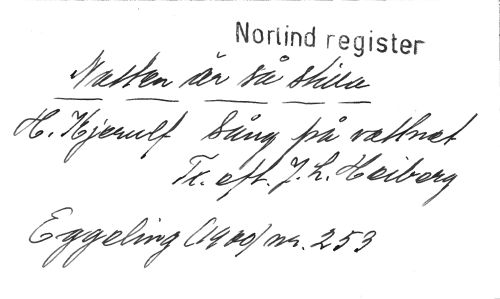 Norlind register
Natten är så stilla
H. Kjerulf Sång på vattnet
Tr. eft. J. L. Heiberg
Eggeling (1900) nr. 253